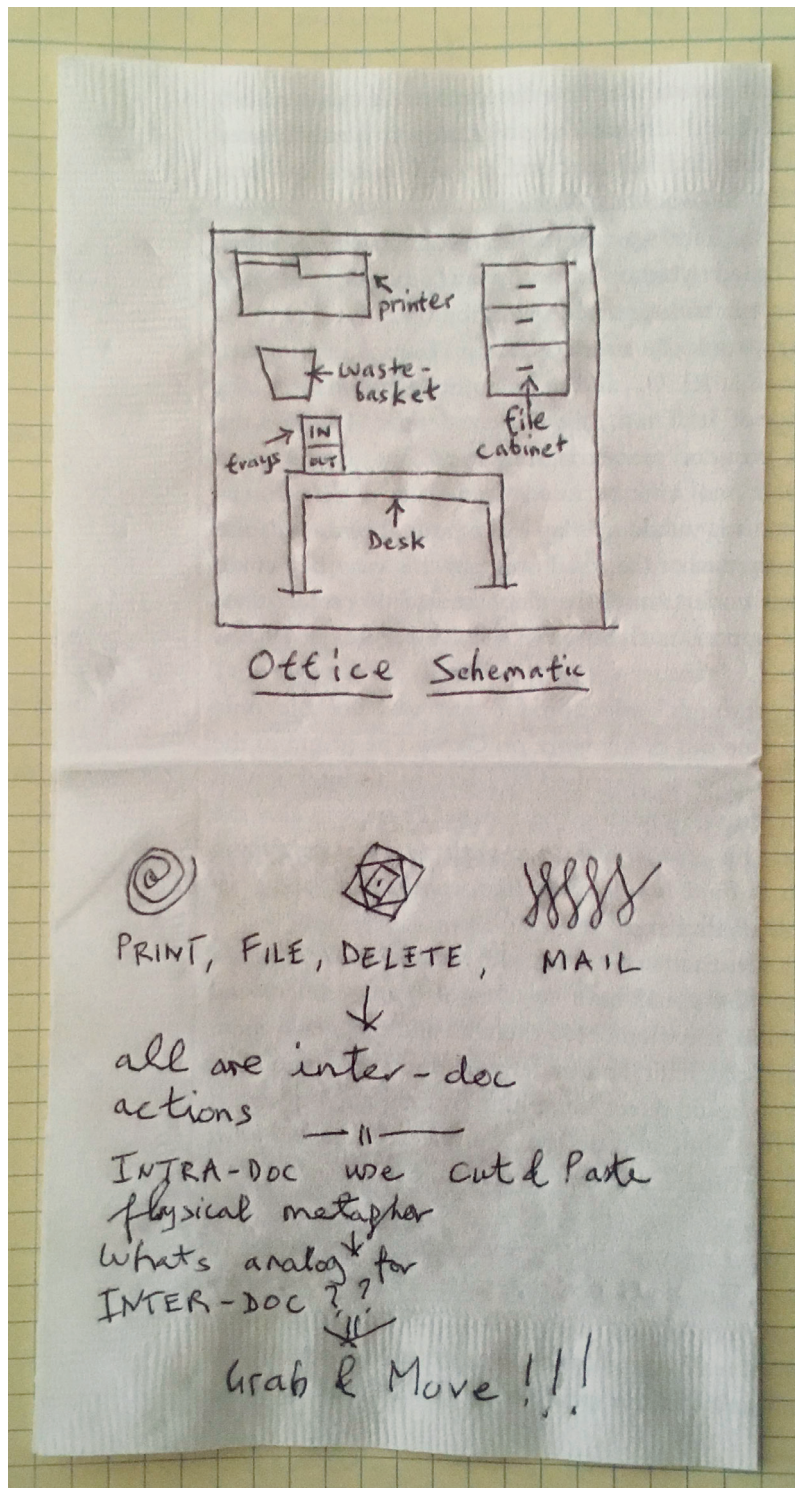 printer
waste-
basket
file
cabinet
trays
IN
OUT
Desk
Office Schematic
PRINT, FILE, DELETE, MAIL
all are inter-doc
actions
INTRA-DOC use cut & Paste
physical metaphor
Whats analog for
INTER-DOC ??
Grab & Move !!!